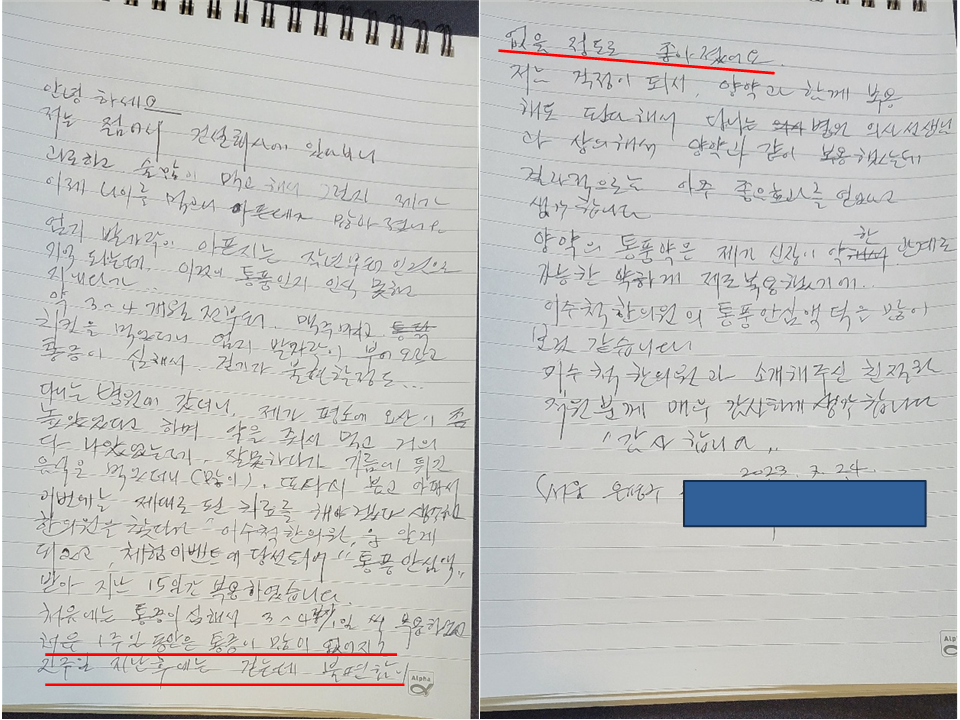 안녕 하세요
저는 젊어서 건설회사에 있다보니
과로하고 술많이 먹고 해서 그런지 제가
이제 나이를 먹으니 아픈데가 많아 졌네요
엄지 발가락이 아픈지는 작년부터
되는데. 이것이 통풍인지 인식 못하고
지내다가
약 3~4개월 전부터. 맥주 마시고
치킨을 먹었더니 엄지 발가락이 부어 오르고
통증이 심해서. 걷기가 불편할정도...
다니는 병원에 갔더니, 제가 평소에 요산이 좀
높았었다고 하며 약을 줘서 먹고 거의
다 나았었는데. 잘못하다가 기름에 튀긴
음식을 먹었더니 (많이). 또다시 붓고 아파서
이번에는 제대로 된 치료를 해야 겠다 생각하고
한의원을 찾다가 "이수척한의원"을 알게
되었고, 체험이벤트에 당선되어 "통풍안심액"
받아 지난 15일간 복용하였습니다.
처음에는 통증이 심해서 3~4 1일 씩 복용하였고
처음 1주일 동안은 통증이 많이 없어지고
2주일 지난후에는 걷는데 불편함이
없을 정도로 좋아졌어요.
저는 걱정이 되서. 양약과 함께 복용
해도 되나 해서 다니는 병원 의사선생님
과 상의해서 양약과 같이 복용했는데
결과적으로는 아주 좋은효과를 얻었다고
생각합니다
양약의 통풍약은 제가 신장이 약한 관계로
가능한 약하게 제조복용했기에..
이수척한의원의 통풍안심액 덕을 많이
본것 같습니다.
이수척 한의원과 소개해주신 친절한
직원분께 매우 감사하게 생각합니다
"감사 합니다"
2023. 7. 24.
(서울 은평구
Alpha
Alpha